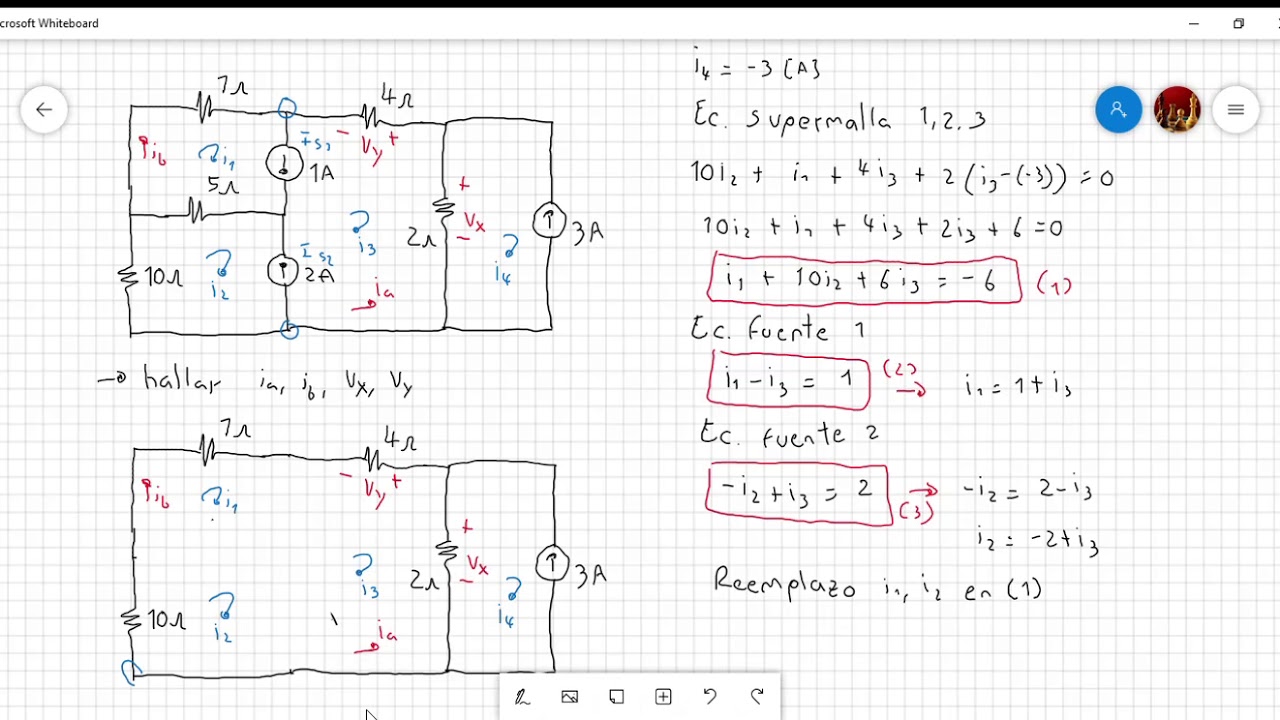 crosoft Whiteboard
7Ω
4Ω
ib
i1
Is1
1A
- Vy +
5Ω
i3
+
Vx
-
2Ω
3A
10Ω
i2
Is2
2A
ia
i4
→ hallar ia, ib, Vx, Vy
7Ω
4Ω
ib
i1
- Vy +
i3
+
Vx
-
2Ω
3A
10Ω
i2
ia
i4
i4 = -3 [A]
Ec. Supermalla 1,2,3
10i2 + i1 + 4i3 + 2(i3-(-3)) = 0
10i2 + i1 + 4i3 + 2i3 + 6 = 0
i1 + 10i2 + 6i3 = -6 (1)
Ec. fuente 1
i1 - i3 = 1 (2) → i1 = 1 + i3
Ec. fuente 2
-i2 + i3 = 2 (3) → -i2 = 2 - i3
i2 = -2 + i3
Reemplazo i1, i2 en (1)